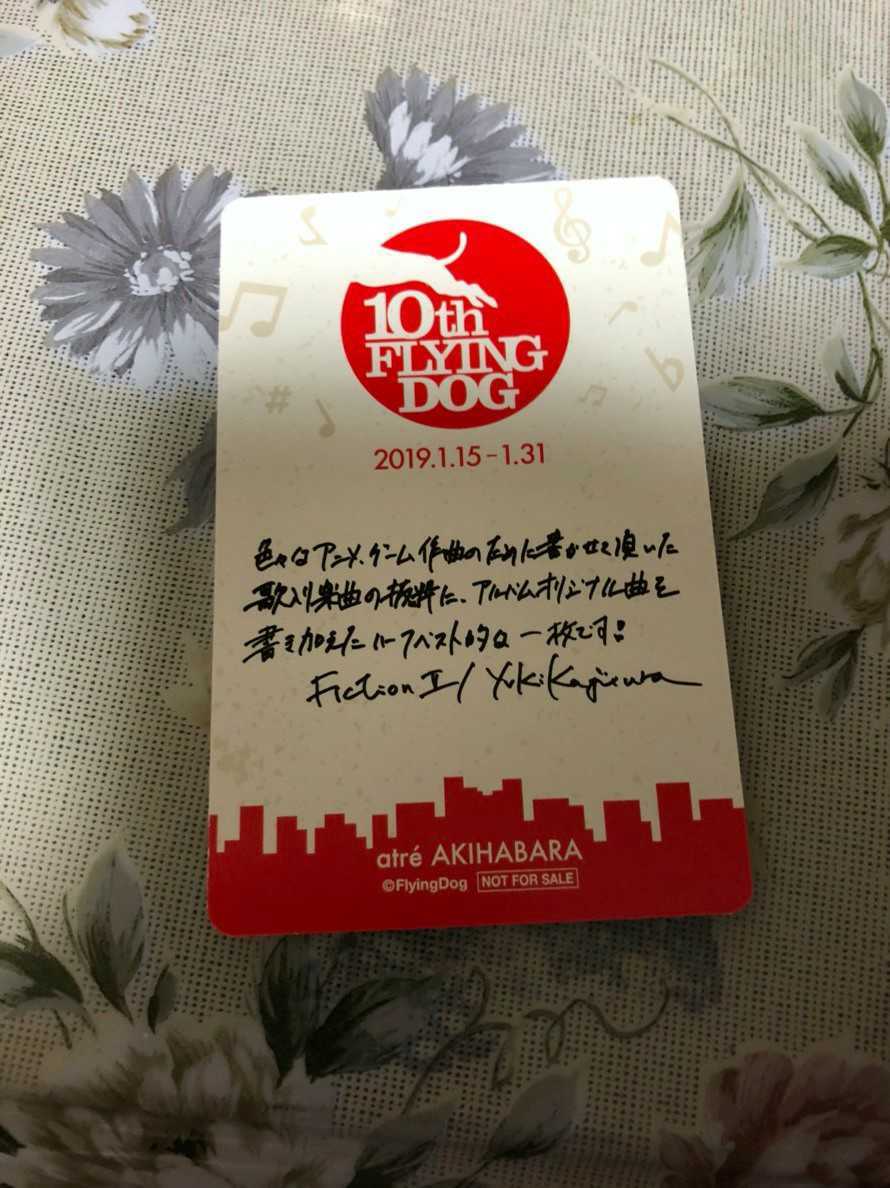 10th
FLYING
DOG
2019.1.15-1.31
色々なアニメ、ゲーム作曲のために書かせて頂いた
歌入り楽曲の抜粋に、アルバムオリジナル曲を
書き加えたハーフベスト的な一枚です!
Fiction II / Yuki Kajiura
atré AKIHABARA
©FlyingDog NOT FOR SALE